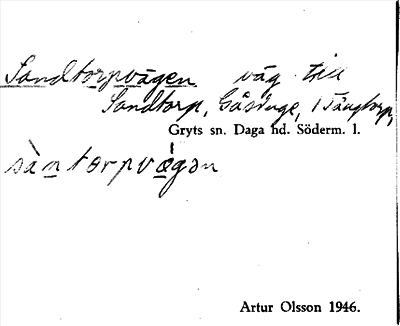 Sandtorpvägen väg till
Sandtorp, Gåsinge, Tängtorp,
Gryts sn. Daga hd. Söderm. l.
sàntorpvǽgən
Artur Olsson 1946.